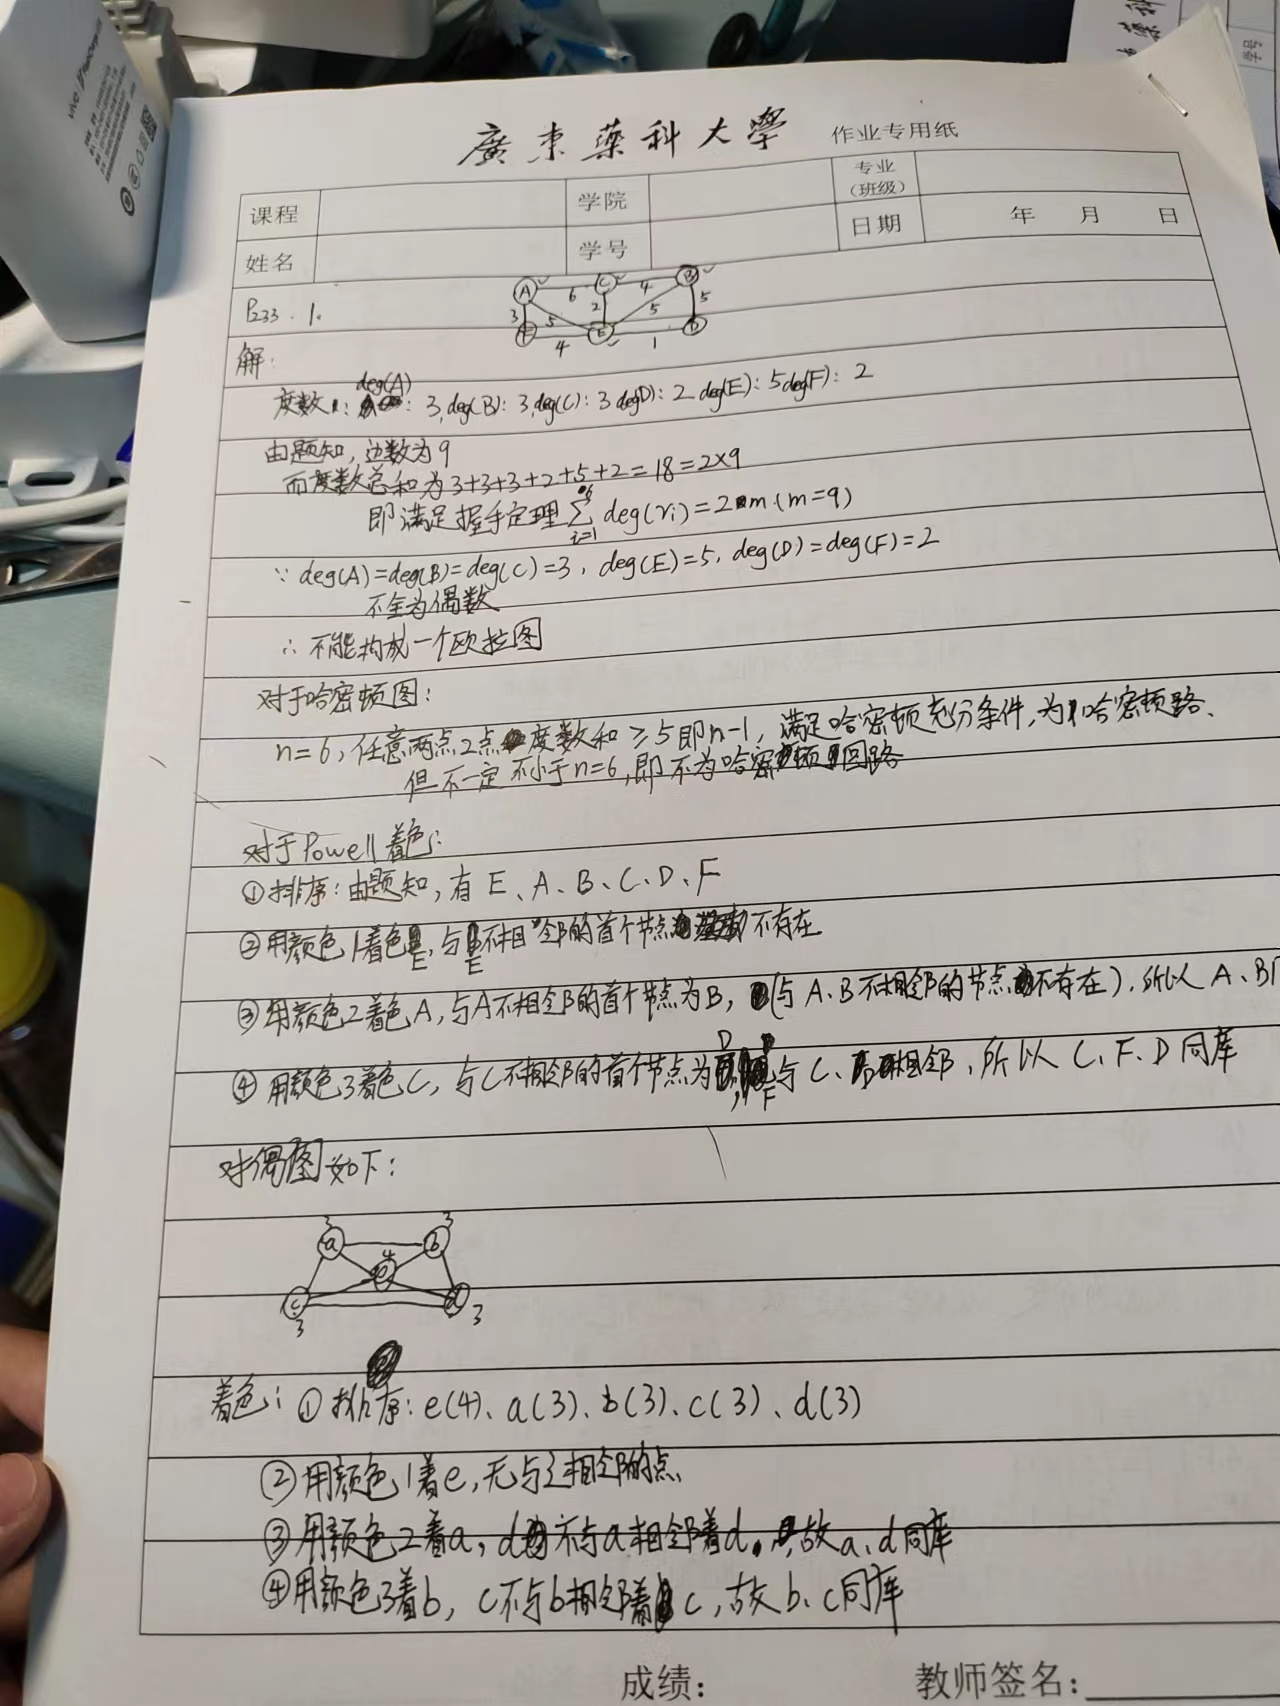 廣東藥科大學 作业专用纸
课程 学院 专业(班级)
姓名 学号 日期 年 月 日
P233 . 1.
A 6 C 4 B
3 5 2 5 5
F 4 E 1 D
解:
deg(A)
度数: 3, deg(B): 3, deg(C): 3 deg(D): 2 deg(E): 5 deg(F): 2
由题知, 边数为9
而度数总和为3+3+3+2+5+2=18=2×9
即满足握手定理 Σ deg(vi)=2m (m=9)
i=1
∵ deg(A)=deg(B)=deg(C)=3, deg(E)=5, deg(D)=deg(F)=2
不全为偶数
∴ 不能构成一个欧拉图
对于哈密顿图:
n=6, 任意两点2点度数和≥5即n-1, 满足哈密顿充分条件, 为哈密顿路、
但不一定不小于n=6, 即不为哈密顿回路
对于Powell着色:
①排序: 由题知, 有 E、A、B、C、D、F
②用颜色1着色E, 与E不相邻的首个节点不存在
③用颜色2着色A, 与A不相邻的首个节点为B, (与A、B不相邻的节点不存在), 所以A、B
④用颜色3着色C, 与C不相邻的首个节点为D, F与C、D不相邻, 所以C、F、D同库
对偶图如下:
3 3
a b
4
e
c d
3 3
着色: ①排序: e(4)、a(3)、b(3)、c(3)、d(3)
②用颜色1着e, 无与之相邻的点
③用颜色2着a, d不与a相邻着d, 故a、d同库
④用颜色3着b, c不与b相邻着c, 故b、c同库
成绩: 教师签名: